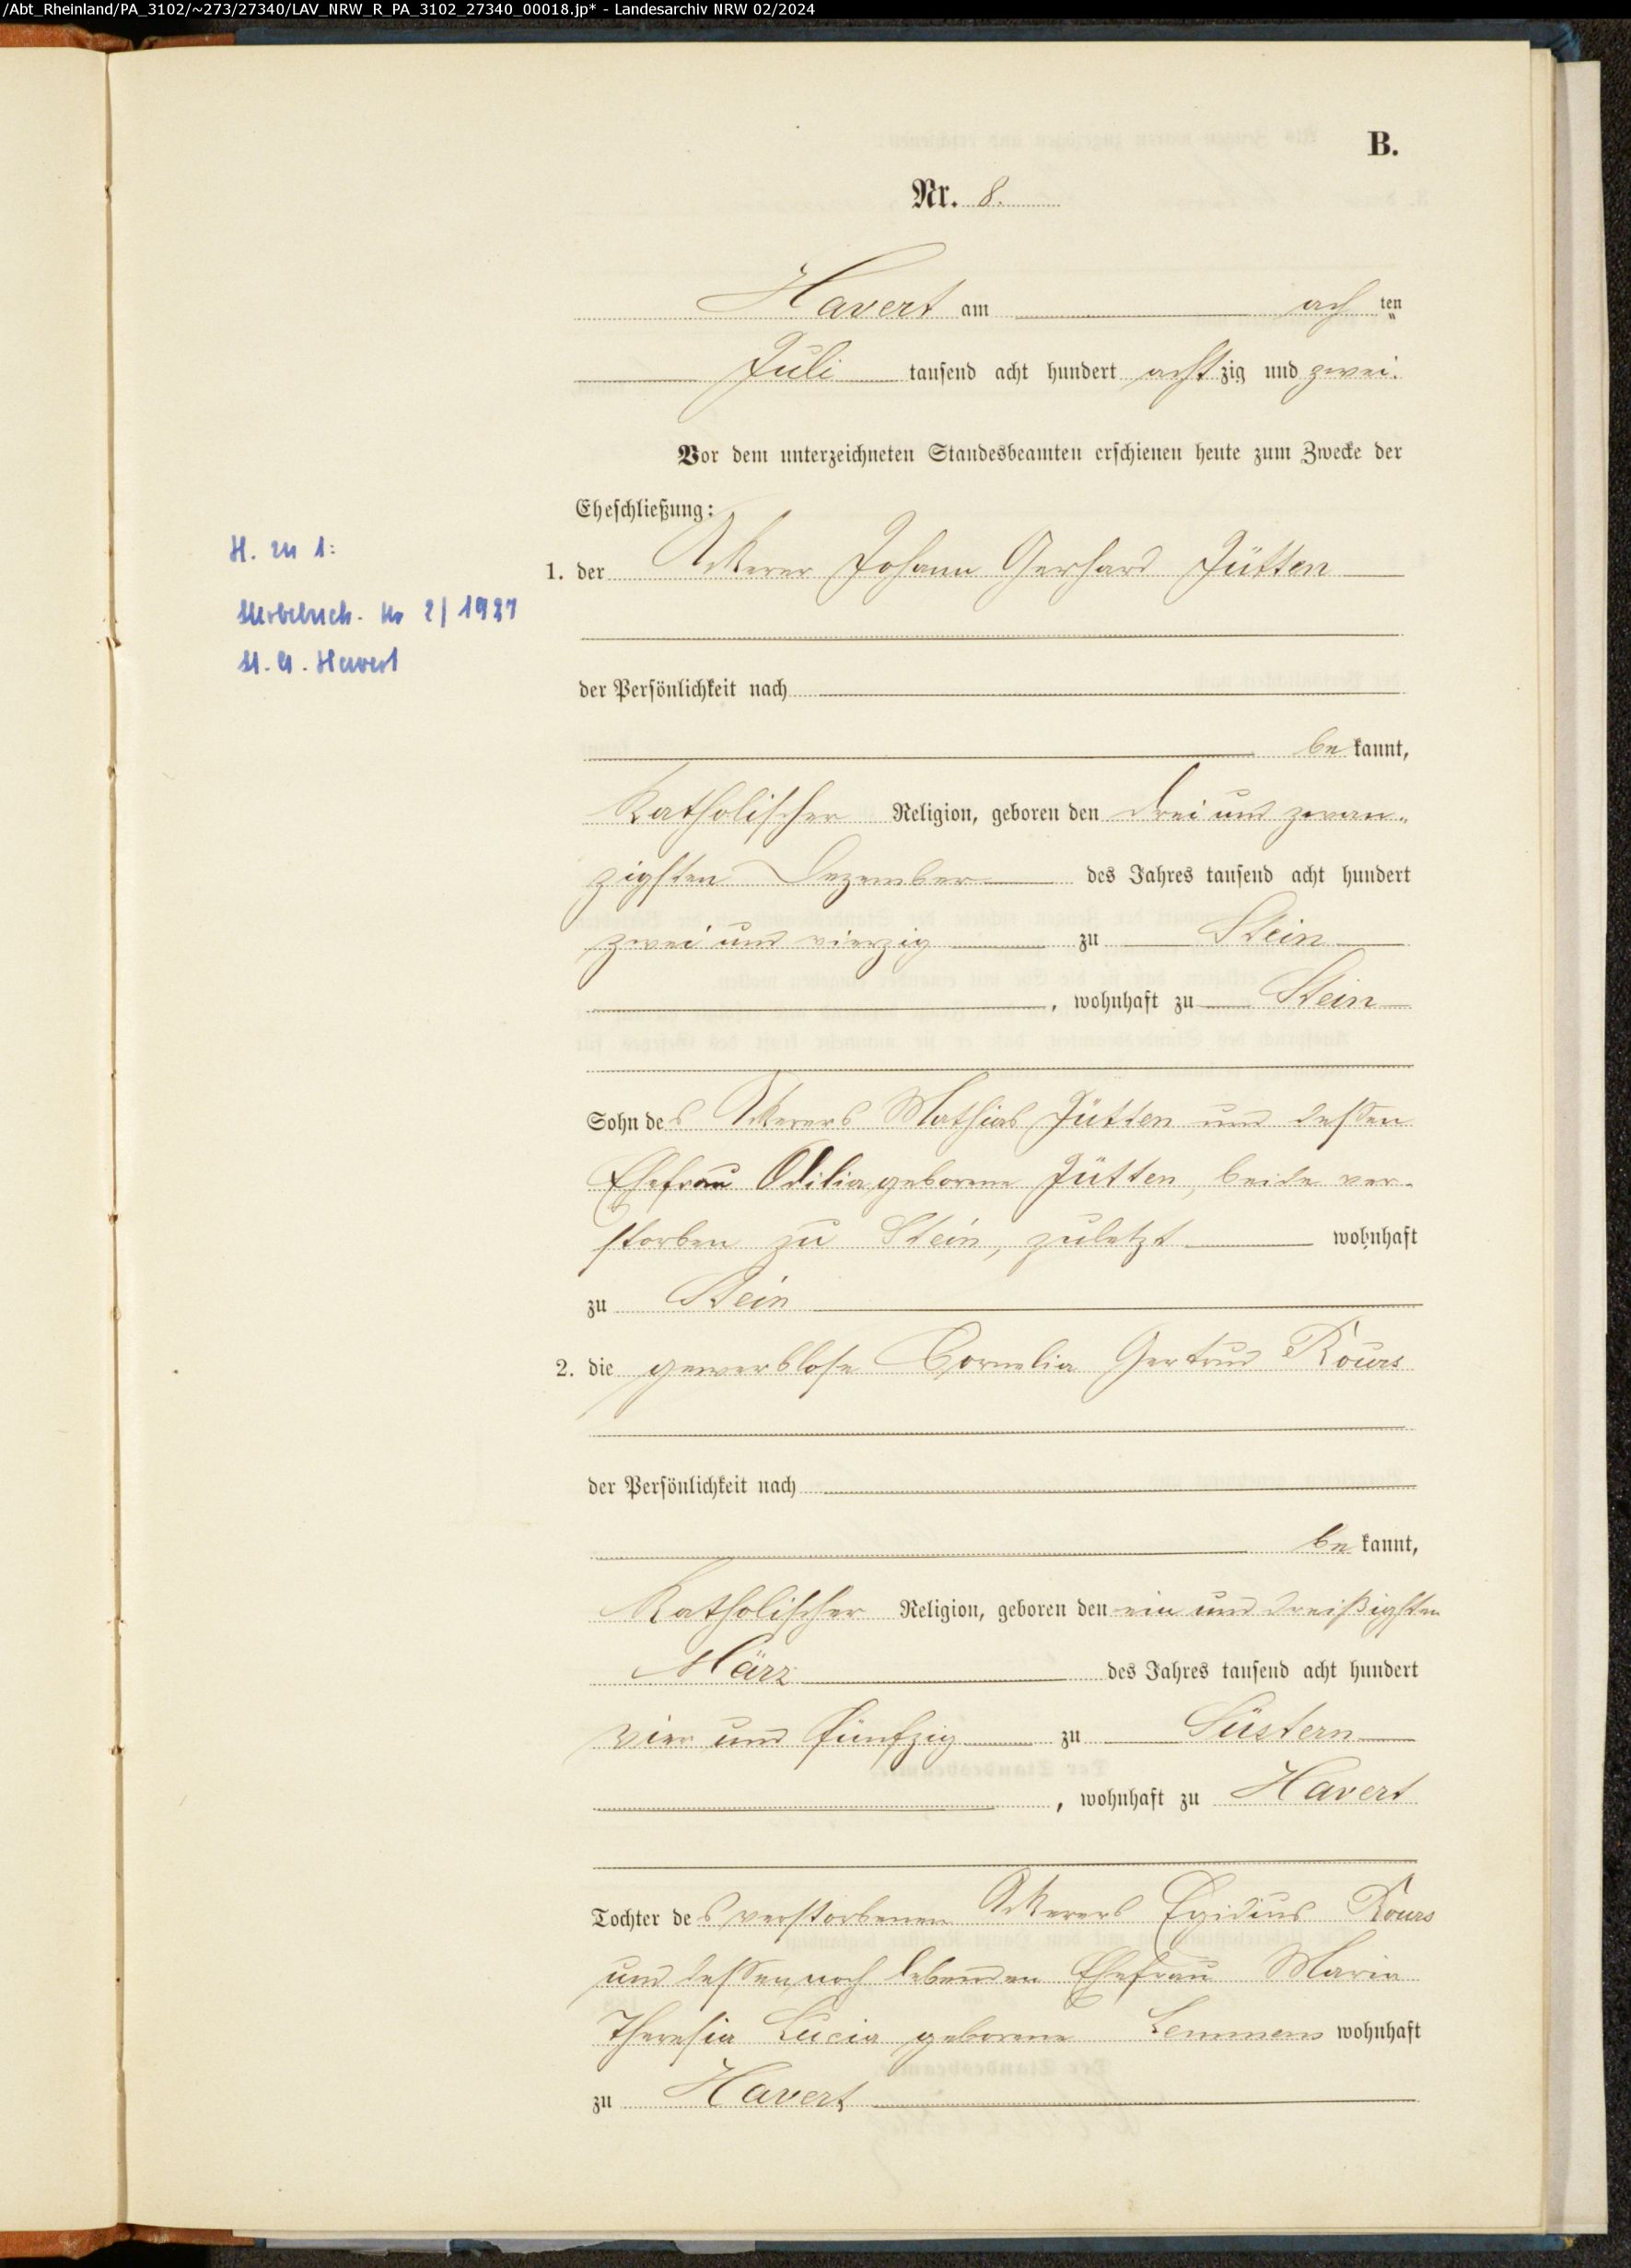 /Abt_Rheinland/PA_3102/~273/27340/LAV_NRW_R_PA_3102_27340_00018.jp* - Landesarchiv NRW 02/2024
B.
Nr. 8.
Havert am ach ten
Juli tausend acht hundert acht zig und zwei.
Vor dem unterzeichneten Standesbeamten erschienen heute zum Zwecke der
Eheschließung:
1. der Ackerer Johann Gerhard Jütten
der Persönlichkeit nach
be kannt,
Katholischer Religion, geboren den drei und zwan-
zigsten Dezember des Jahres tausend acht hundert
zwei und vierzig zu Stein
, wohnhaft zu Stein
Sohn des Ackerers Mathias Jütten und dessen
Ehefrau Odilia geborene Jütten, beide ver-
storben zu Stein, zuletzt wohnhaft
zu Stein
2. die gewerblose Cornelia Gertrud Rours
der Persönlichkeit nach
be kannt,
Katholischer Religion, geboren den ein und dreißigsten
März des Jahres tausend acht hundert
vier und fünfzig zu Süstern
, wohnhaft zu Havert
Tochter des verstorbenen Ackerers Egidius Rours
und dessen noch lebenden Ehefrau Maria
Theresia Lucia geborene Lemmens wohnhaft
zu Havert
H. zu 1:
Sterbebuch. Nr 2/1927
St. A. Havert